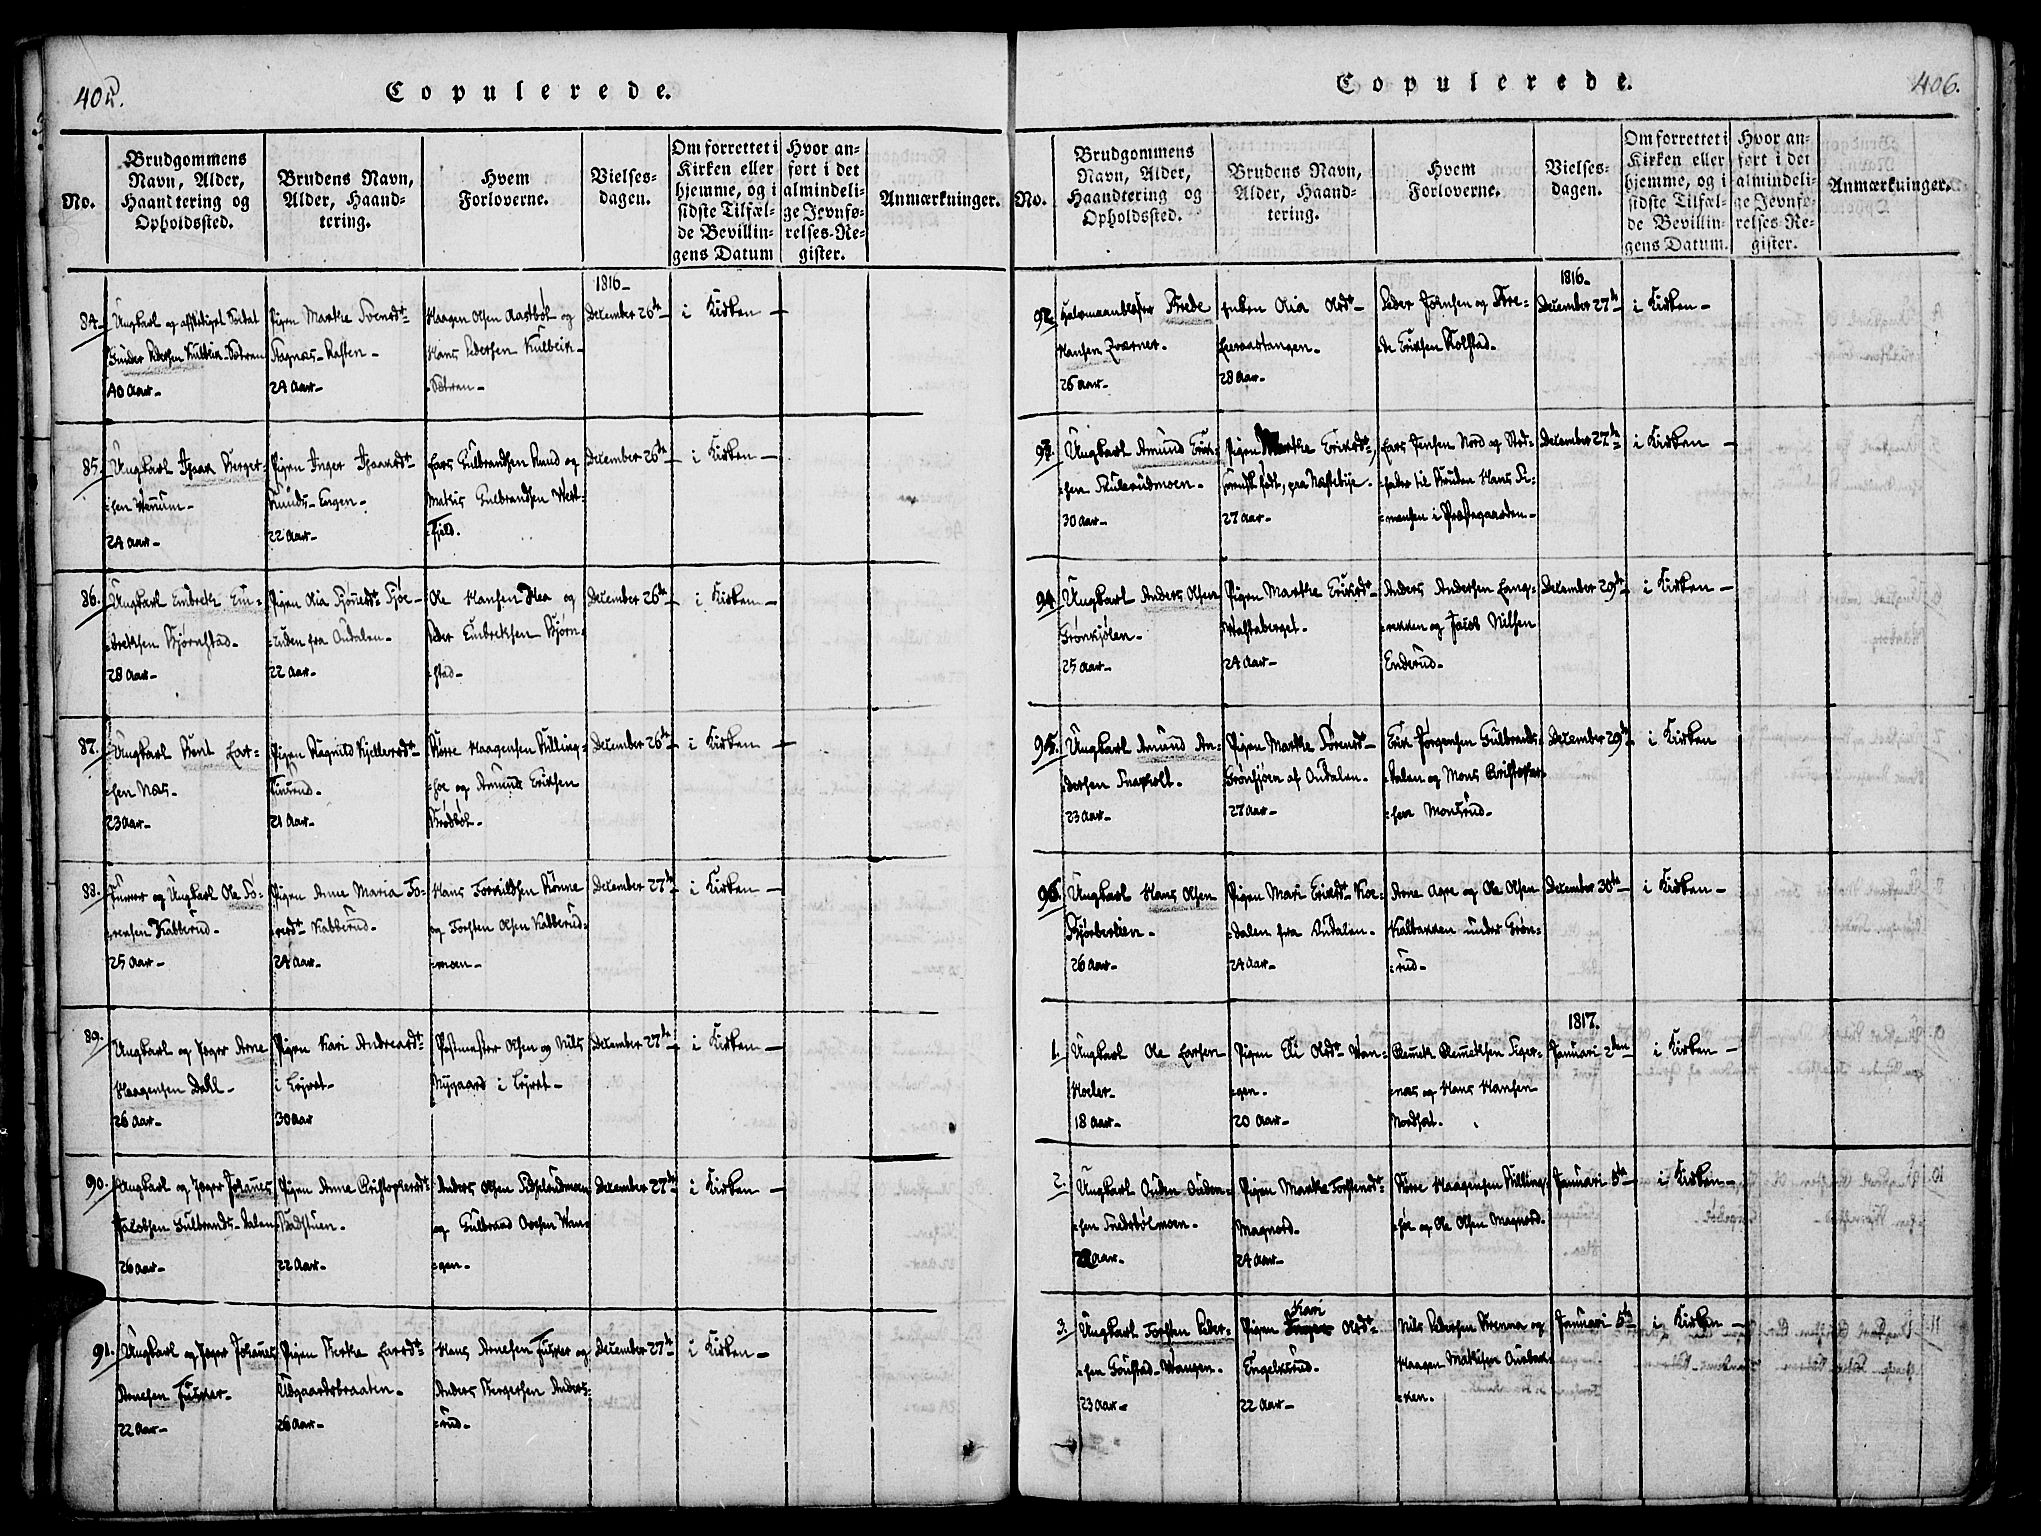 405.
Copulerede.
No.
Brudgommens
Navn, Alder,
Haandtering og
Opholdssted.
Brudens Navn,
Alder, Haand-
tering.
Hvem
Forloverne.
Vielses-
dagen.
Om forrettet i
Kirken eller
hjemme, og i
sidste Tilfæl-
de Bevillin-
gens Datum
Hvor an-
ført i det
almindeli-
ge Jevnfø-
relses-Re-
gister.
Anmærkninger.
1816-
84.
Ungkarl og afskediget Soldat
Gunder Pedersen Kulbeik-Sætren
40 Aar-
Pigen Marthe Svensdt-
Tagnæs-Hasten-
24 Aar-
Haagen Olsen Aastböl og
Hans Pedersen Kulbeik-
-Sætren-
December 26de
i Kirken-
85.
Ungkarl Isaak Berger-
-sen Wennum-
24 Aar-
Pigen Inger Isaksdt-
Lunds-Engen-
22 Aar-
Lars Gulbrandsen Lund og
Mathis Gulbrandsen West-
-Fjeld.
December 26de
i Kirken-
86.
Ungkarl Embreth Em-
-brethsen Björnstad-
28 Aar-
Pigen Olia
-lien fra Audalen-
22 Aar-
Ole Hansen Hea og
Peder Embrethsen Björn-
-stad-
December 26de
i Kirken-
87.
Ungkarl Bent Lar-
-sen Næs-
23 Aar-
Pigen Ragnild Kjelleredt-
21 Aar-
Börre Haagensen Killing-
-hoe og Amund Eriksen
Brödböl-
December 26de
i Kirken-
88.
og Ungkarl Ole To-
-resen Kabberud-
25 Aar-
Pigen Anne Maria To-
-resdt Kabberud-
24 Aar-
Hans Torkildsen Rönne
og Torsten Olsen Kabberud-
-moen-
December 27de
i Kirken-
89.
Ungkarl og Jæger Arne
Haagensen Dahl-
26 Aar-
Pigen Kari Andreasdt-
i Leiret-
30 Aar
Postmester Olsen og Nils
Nygaard i Leiret-
December 27de
i Kirken-
90.
Ungkarl og Jæger Johannes
Jakobsen Gulbrands-Dalen
26 Aar-
Pigen Anne Cristophersdt
Badstuen-
22 Aar-
Anders Olsen Disserudmoen
og Gulbrand Ovesen Wan-
-gen-
December 27de
i Kirken-
91.
Ungkarl og Jæger Johannes
Arnesen Fusker-
22 Aar-
Pigen Berthe Larsdt-
Ødgaardsbraaten-
26 Aar-
Hans Arnesen Fusker og
Anders Bergersen Anders-
-rud-
December 27de
i Kirken-
406.
Copulerede.
No.
Brudgommens
Navn, Alder,
Haandtering og
Opholdssted.
Brudens Navn,
Alder, Haand-
tering.
Hvem
Forloverne.
Vielses-
dagen.
Om forrettet i
Kirken eller
hjemme, og i
sidste Tilfæl-
de Bevillin-
gens Datum.
Hvor an-
ført i det
almindeli-
ge Jevnfø-
relses-Re-
gister.
Anmærkninger.
1816-
92.
Halvmaanblæser Brede
Hansen Zværner-
26 Aar-
Enken Olia Olsdt-
Leeraastangen-
28 Aar-
Peder Jörnsen og Bre-
-de Eriksen Kolstad-
December 27de
i Kirken-
93.
Ungkarl Amund Erik-
-sen Skulerudmoen-
30 Aar-
Pigen Marthe Eriksdt,
svensk föd, paa Næstebye-
27 Aar-
Lars Jensen Nord og Sted-
-fader til Bruden Hans Si-
-monsen i Præstegaarden-
December 27de
i Kirken-
94.
Ungkarl Anders Olsen
Grönkjölen-
25 Aar-
Pigen Marthe Eriksdt-
Wastaberget-
24 Aar-
Anders Andersen Lang-
-rekken og Jacob Nilsen
Enderud-
December 29de
i Kirken-
95.
Ungkarl Amund An-
-dersen
23 Aar-
Pigen Marthe Sörensdt-
Grönsjöen af Audalen-
27 Aar-
Erik Jörgensen Gulbrands-
-Dalen og Mons Cristopher-
-sen Monsrud-
December 29de
i Kirken
96.
Ungkarl Hans Olsen
Björberlien-
26 Aar-
Pigen Mari Eriksdt Koe-
-dalen fra Audalen-
24 Aar-
Arne Agre og Ole Olsen
Kalbakken under Grön-
-rud-
December 30de
i Kirken-
1817.
1.
Ungkarl Ole Larsen
Holer-
18 Aar-
Pigen Eli Olsdt Wan-
-gen-
20 Aar-
Clemet Clemetsen Siger-
-næs og Hans Hansen
Nordset.
Januari 2den
i Kirken-
2.
Ungkarl Auden Auden-
-sen
Aar-
Pigen Marthe Torstensdt-
Magnord-
24 Aar-
Börre Haagensen Killing-
-hoe og Ole Olsen Magnord-
Januari 5te
i Kirken-
3.
Ungkarl Torsten Peder-
-sen Goustad-Wangen-
23 Aar-
Kari
Pigen Inger Olsdt-
Engelsrud-
22 Aar-
Nils Pedersen Brenna og
Haagen Mathisen Aubak-
-ken.
Januari 5te
i Kirken-